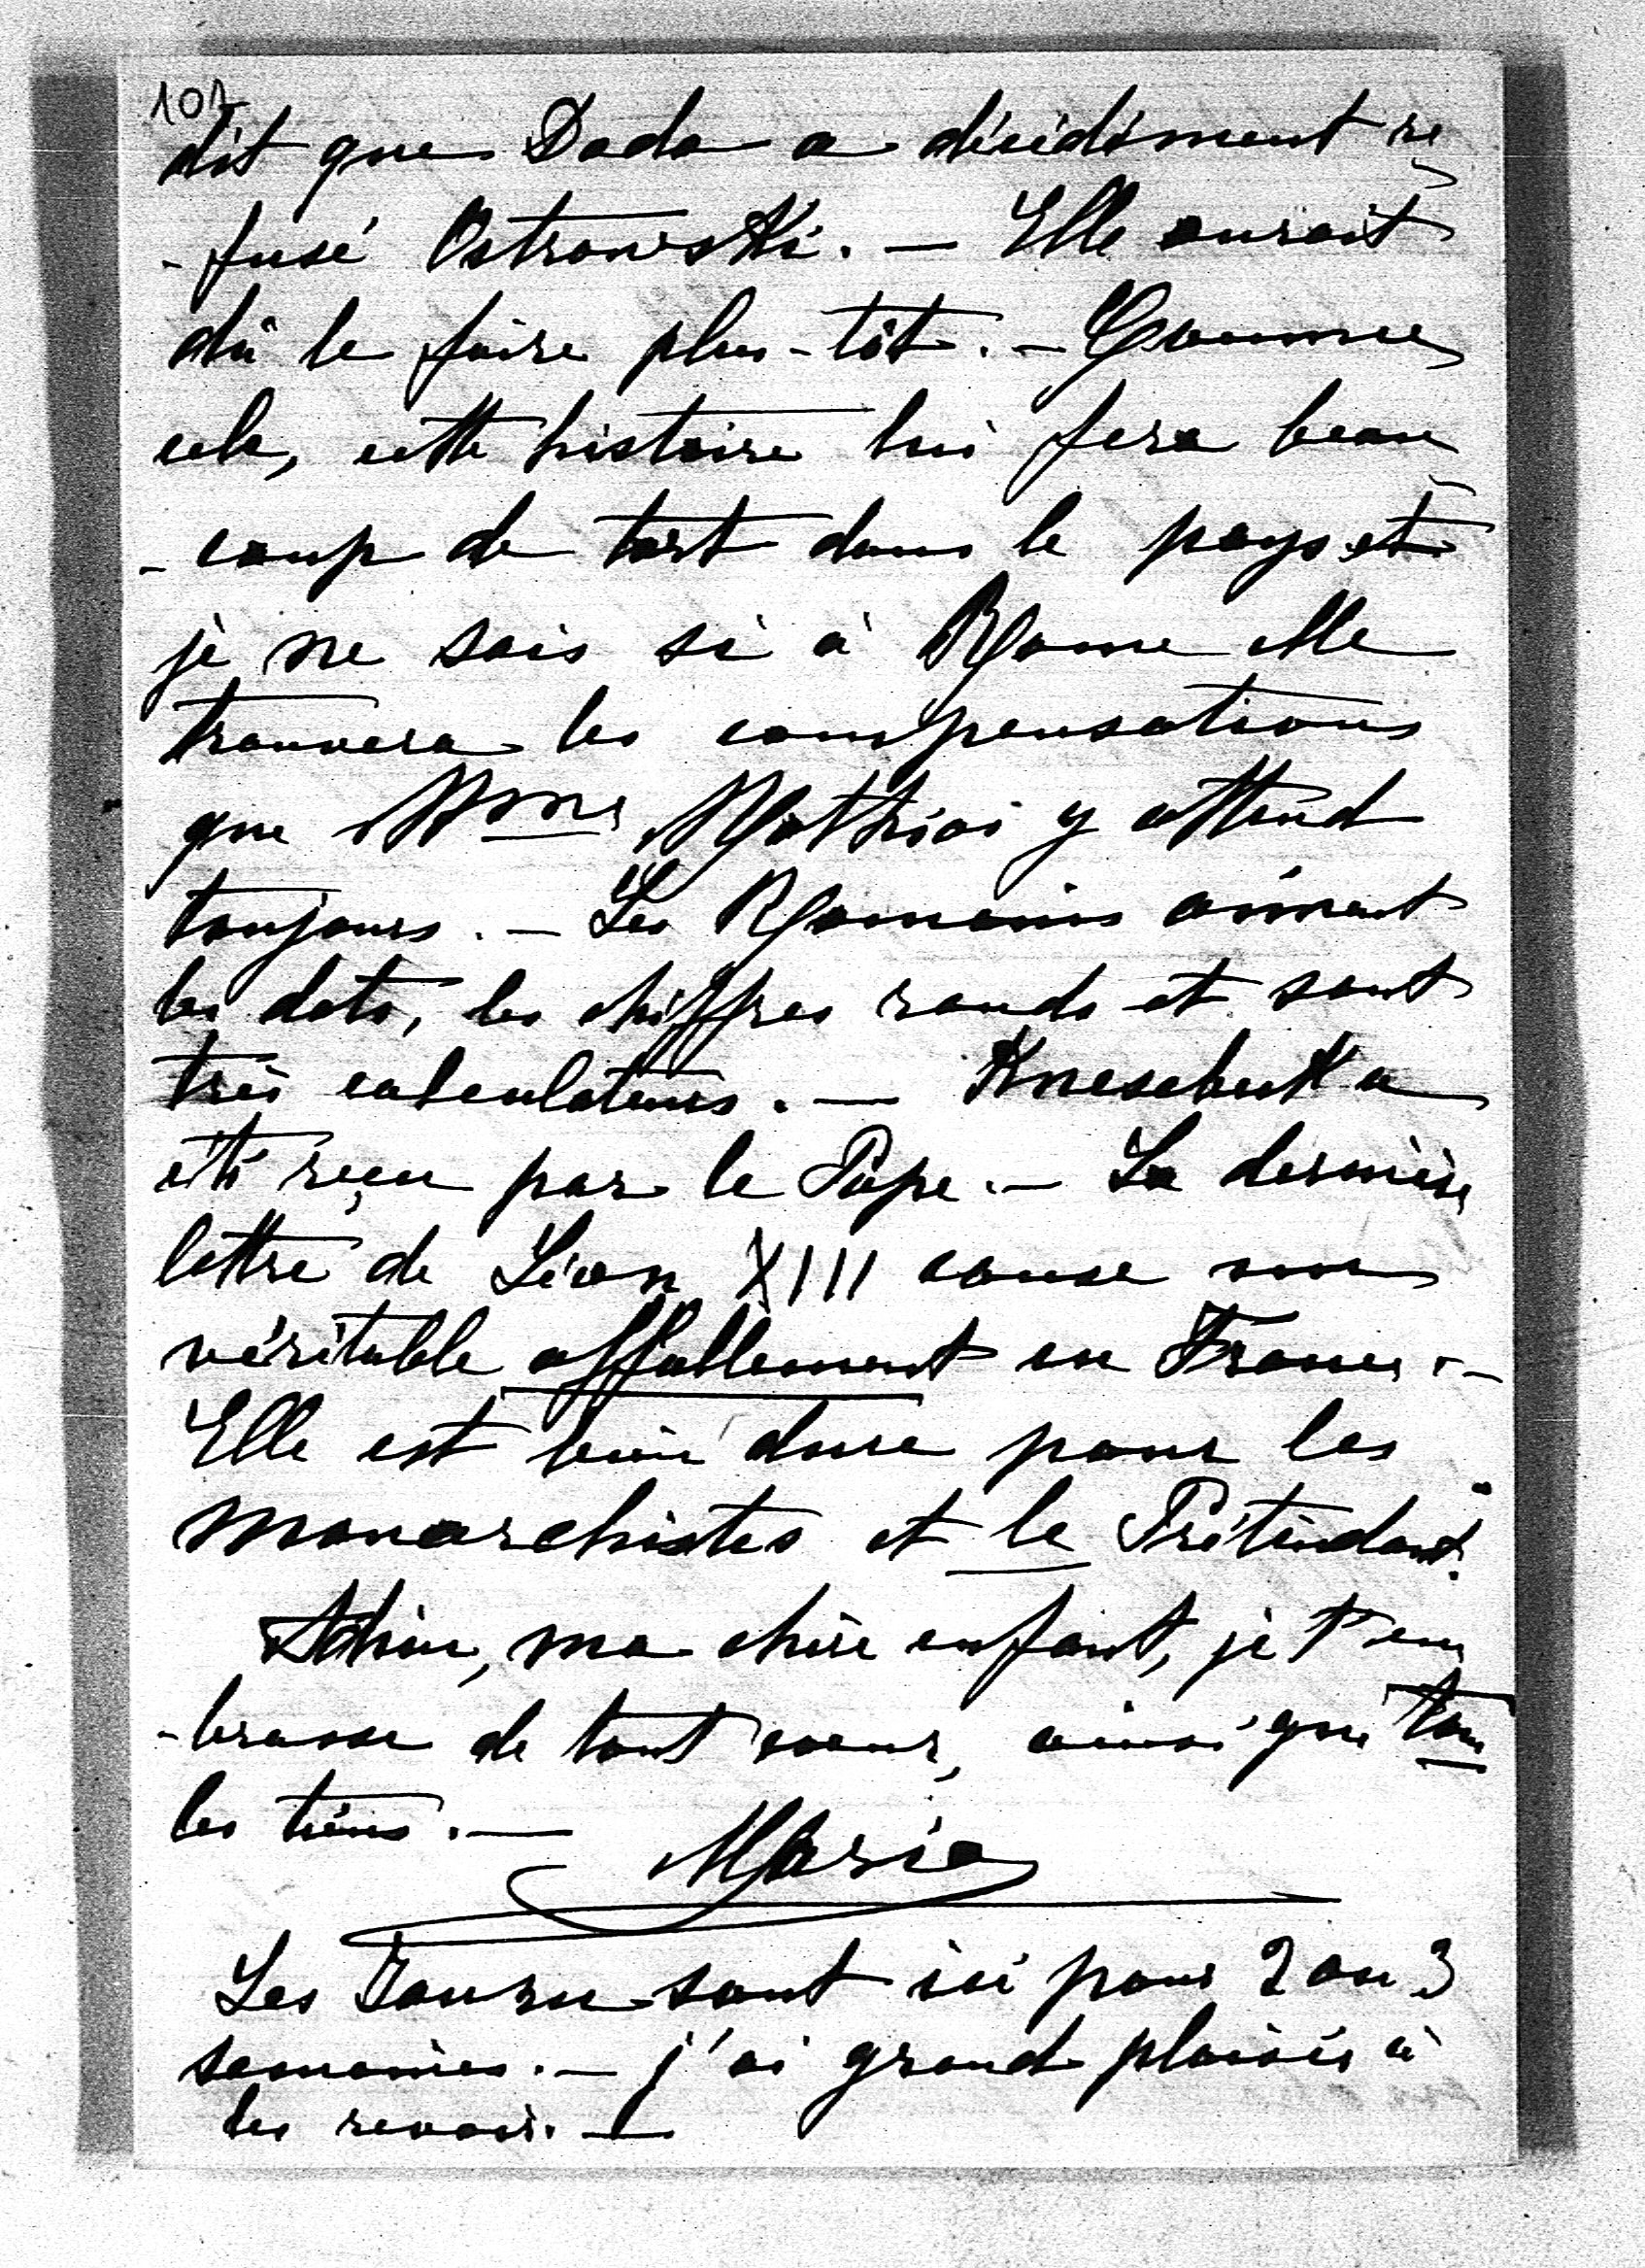 107
dit que Dada a décidément re
-fusé Ostrowski. — Elle aurait
dû le faire plus-tôt. — Comme
cela, cette histoire lui fera beau
-coup de tort dans le pays et
je ne sais si à Rome elle
trouvera les compensations
que Mme Mathiai y attend
toujours. — Les Romains aiment
les dots, les chiffres ronds et sont
très calculateurs. — Knesebeck a
été reçu par le Pape. — La dernière
lettre de Léon XIII cause un
véritable affallement en France. —
Elle est bien dure pour les
monarchistes et le Prétendant.
Adieu, ma chère enfant, je t'em
-brasse de tout coeur, ainsi que tous
les tiens. —
Maria
Les sont ici pour 2 ou 3
semaines. — j'ai grand plaisir à
les revoir. —